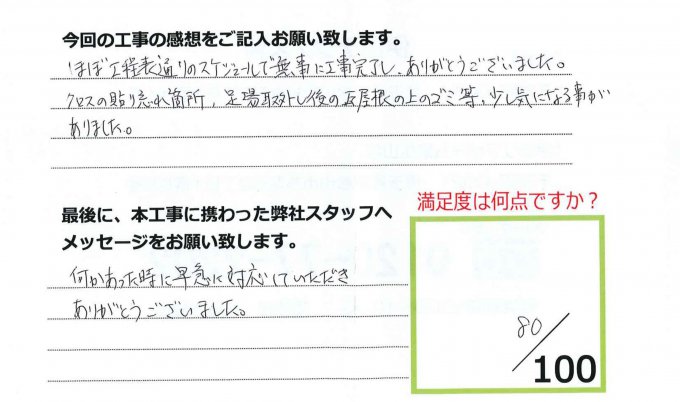 今回の工事の感想をご記入お願い致します。
ほぼ工程表通りのスケジュールで無事に工事完了し、ありがとうございました。
クロスの貼り忘れ箇所，足場取外し後の瓦屋根の上のゴミ等，少し気になる事が
ありました。
最後に、本工事に携わった弊社スタッフへ
メッセージをお願い致します。
何かあった時に早急に対応していただき
ありがとうございました。
満足度は何点ですか？
80/100